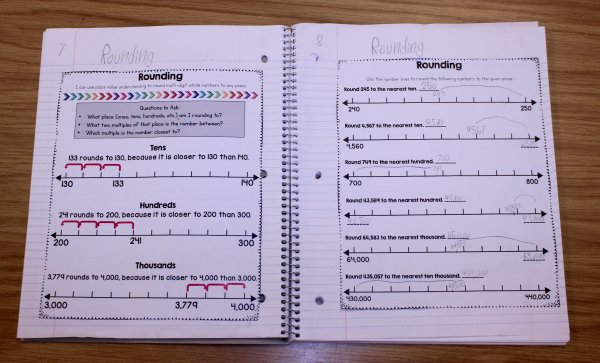 7
Rounding
Rounding
I can use place value understanding to round multi-digit whole numbers to any place.
Questions to Ask
• What place (ones, tens, hundreds, etc.) am I rounding to?
• What two multiples of that place is the number between?
• Which multiple is the number closest to?
Tens
133 rounds to 130, because it is closer to 130 than 140.
130 133 140
Hundreds
241 rounds to 200, because it is closer to 200 than 300.
200 241 300
Thousands
3,779 rounds to 4,000, because it is closer to 4,000 than 3,000.
3,000 3,779 4,000
8
Rounding
Rounding
Use the number lines to round the following numbers to the given place.
Round 245 to the nearest ten. 250
240 250
Round 4,567 to the nearest ten. 4,570
4567
4,560
Round 749 to the nearest hundred. 700
700 800
Round 43,589 to the nearest hundred.
Round 64,583 to the nearest thousand. 65,000
64,000
Round 435,057 to the nearest ten thousand.
430,000 440,000